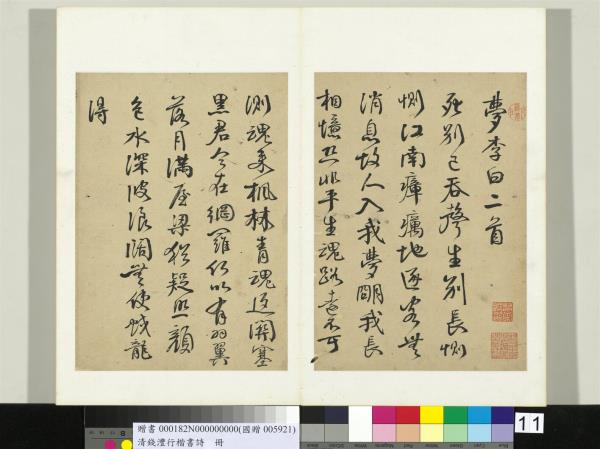 夢李白二首
死別已吞聲生別長惻
惻江南瘴癘地逐客無
消息故人入我夢明我長
相憶恐非平生魂路遠不可
測魂來楓林青魂返關塞
黑君今在網羅何以有羽翼
落月滿屋梁猶疑照顏
色水深波浪闊無使蛟龍
得
贈書 000182N000000000(國贈 005921)
清錢灃行楷書詩 冊
11